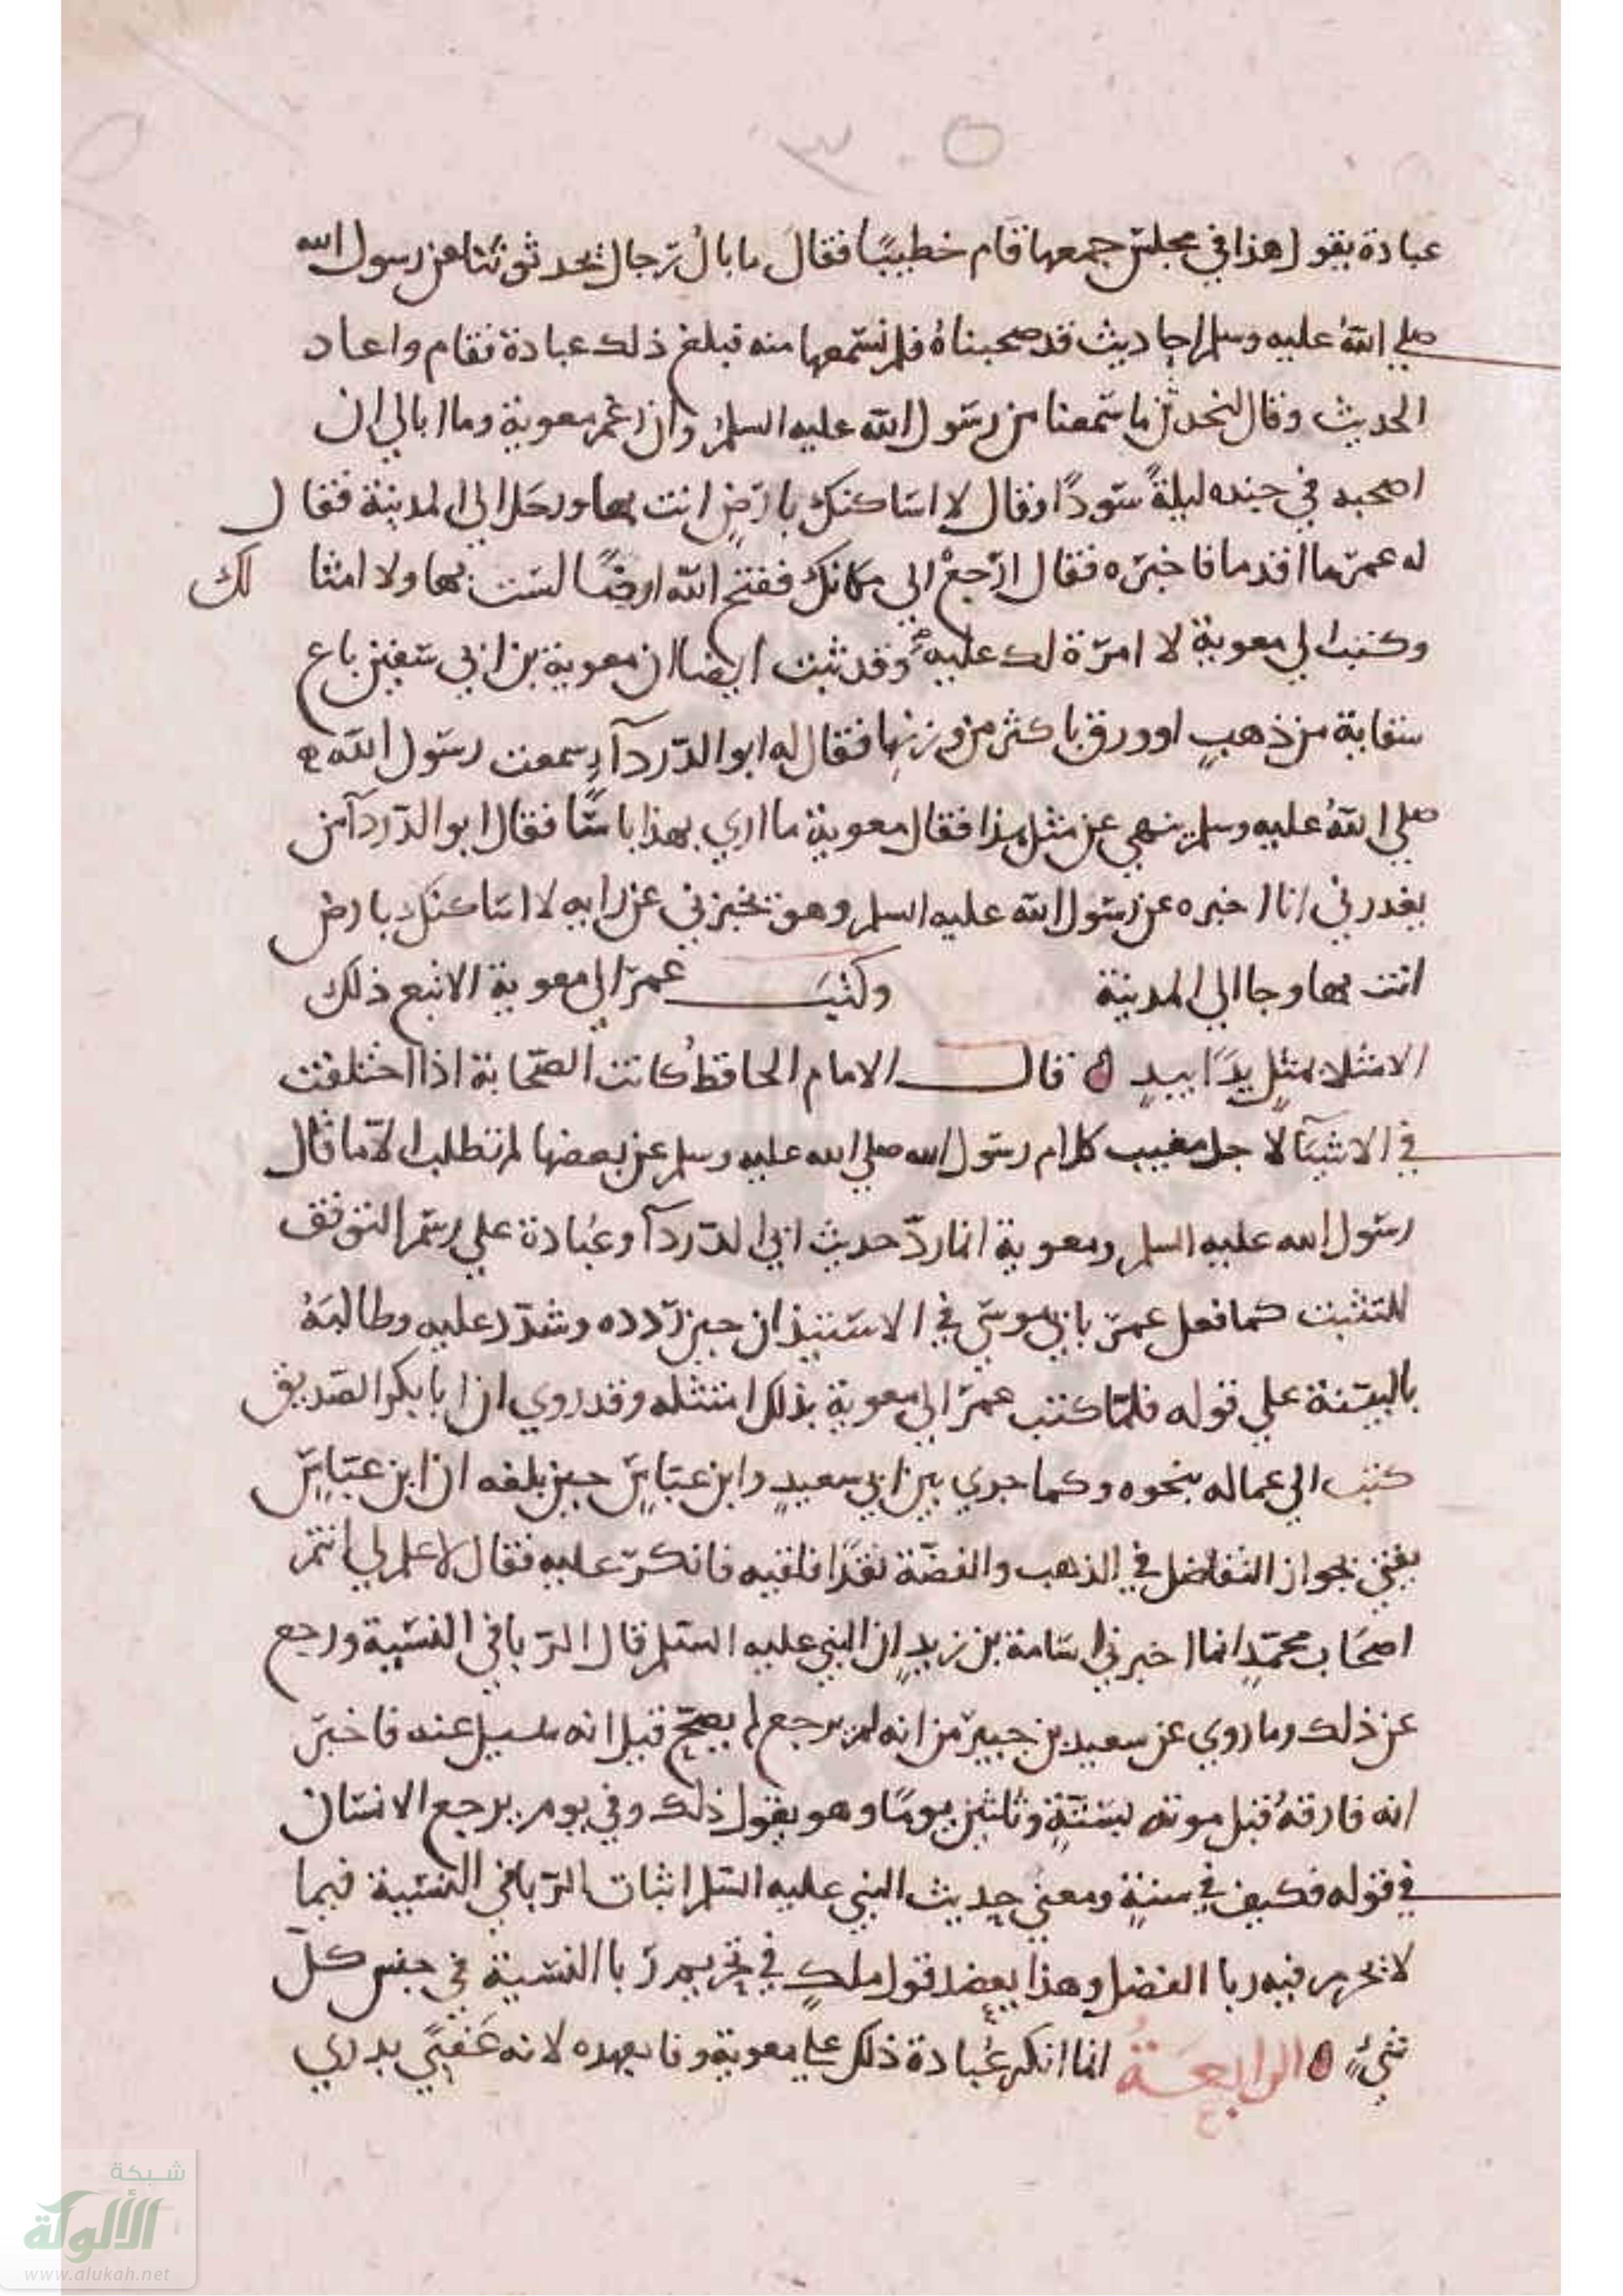 ٣٠٥
عبادة يقول هذا في مجلس جمعها قام خطيبًا فقالَ ما بالُ رّجال يحدثوننا عن رسول الله
صلي اللهُ عليه وسلم احاديث قد صحبناهُ فلم نسمعها منه فبلغ ذلك عبادة فقام واعاد
الحديث وقال لنحدثن ما سمعنا من رسول الله عليه السلمُ وان رغم معوية وما ابالي ان
اصحبه في جنده ليلةً سودًا وقال لا اساكنك بارضٍ انت بها ورحل الي المدينة فقال
له عمر ما اقدمك فاخبره فقال ارْجعْ الي مكانك ففتح الله ارضًا لست بها ولا امثالك
وكتب الي معوية لا امرة لك عليه وقد ثبت ايضا ان معوية بن ابي سفين باع
سقاية من ذهبٍ او ورق باكثر من وزنها فقال له ابو الدرداءِ سمعت رسول الله
صلي اللهُ عليه وسلم ينهي عن مثل هذا فقال معوية ما اري بهذا باسًا فقال ابو الدرداء من
يعذرني انا اخبره عن رسول الله عليه السلم وهو يخبرني عن رايه لا اساكنك بارض
انت بها وجا الي المدينة وكتبَ عمر الي معوية الا تبع ذلك
الا مثلا بمثلٍ يدًا بيدٍ قال الامام الحافظُ كانت الصحابة اذا اختلفت
في الاشيآ لاجل مغيب كلام رسول الله صلي الله عليه وسلم عن بعضها لم تطلب الا ما قال
رسول الله عليه السلم ومعوية انما ردّ حديث ابي الدردآ وعُبادة علي رسم التوقف
للتثبت كما فعل عمر بابي موسي في الاستيذان حين ردده وشدّد عليه وطالبَهُ
بالبينة علي قوله فلمّا كتب عمر الي معوية بذلك امتثله وقد روي ان ابا بكر الصديق
كتب الي عماله بنحوه وكما جري بين ابي سعيدٍ وابن عبّاسٍ حين بلغه ان ابن عبّاسٍ
يفتي بجواز التفاضل في الذهب والفضّة نقدًا فلقيه فانكر عليه فقال لا علم لي انتم
اصحاب محمّدٍ انما اخبرني اسامة بن زيدٍ ان النبي عليه السلم قال الربا في النسية ورجع
عن ذلك وما روي عن سعيد بن جبير من انه لم يرجع لم يصح قيل انه سيل عنه فاخبر
انه فارقهُ قبل موته بستةٍ وثلثين يومًا وهو يقول ذلك وفي يوم يرجع الانسان
في قوله فكيف في سنةٍ ومعني حديث النبي عليه السلم اثبات الربا في النسية فيما
لا يحرم فيه ربا الفضل وهذا يعضد قول ملكٍ في تحريم ربا النسية في جنس كلّ
شيءٍ الرابعَةُ انما انكر عُبادة ذلك علي معوية وفا بعهده لانه عَقَبيّ بدري
شبكة
الألوكة
www.alukah.net